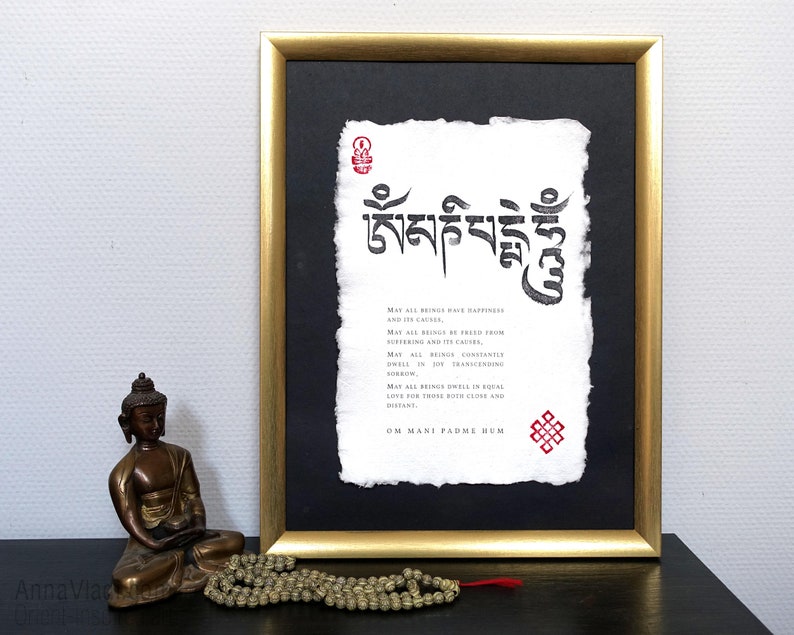 ༀམཎིཔདྨེཧཱུྃ
MAY ALL BEINGS HAVE HAPPINESS
AND ITS CAUSES,
MAY ALL BEINGS BE FREED FROM
SUFFERING AND ITS CAUSES,
MAY ALL BEINGS CONSTANTLY
DWELL IN JOY TRANSCENDING
SORROW,
MAY ALL BEINGS DWELL IN EQUAL
LOVE FOR THOSE BOTH CLOSE AND
DISTANT.
OM MANI PADME HUM